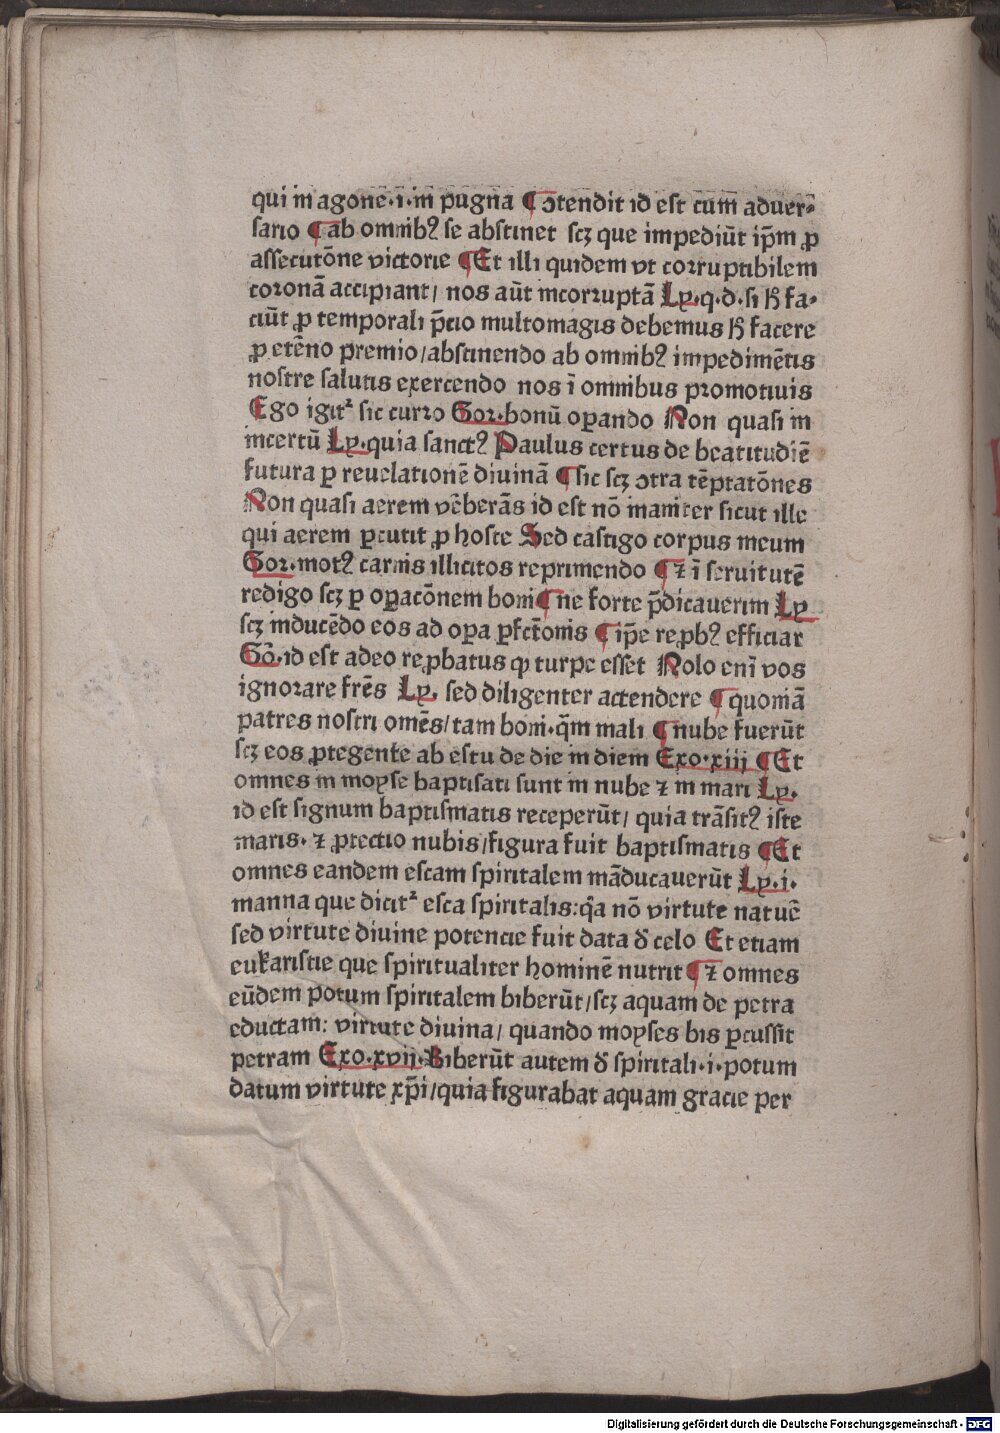 qui in agone·i·in pugna ¶ ↄtendit id est cum aduer⸗
sario ¶ ab omnibꝰ se abstinet scꝫ que impediūt ip̄m ꝓ
assecutōne victorie ¶ Et illi quidem vt corruptibilem
coronā accipiant/ nos aūt incorruptā Ly·q·d·si h̄ fa⸗
ciūt ꝓ temporali p̄cio multomagis debemus h̄ facere
ꝓ etēno premio/abstinendo ab omnibꝰ impedimētis
nostre salutis exercendo nos ī omnibus promotiuis
Ego igit᷑ sic curro Gor·bonū oꝑando Non quasi in
incertū Ly·quia sanctꝰ Paulus certus de beatitudiē
futura ꝑ reuelationē diuinā ¶ sic scꝫ ↄtra tēptatōnes
Non quasi aerem vēberās id est nō inaniter sicut ille
qui aerem ꝑcutit ꝓ hoste Sed castigo corpus meum
Gor·motꝰ carnis illicitos reprimendo ¶ ⁊ ī seruitutē
redigo scꝫ ꝑ oꝑacōnem boni ¶ ne forte p̄dicauerim Ly
scꝫ inducēdo eos ad oꝑa ꝑfct̄onis ¶ ip̄e reꝓbꝰ efficiar
Gō·id est adeo reꝓbatus ꝙ turpe esset Nolo enī vos
ignorare frēs Ly· sed diligenter attendere ¶ quoniā
patres nostri omēs/tam boni·q̄m mali ¶ nube fuerūt
scꝫ eos ꝓtegente ab estu de die in diem Exo·xiii ¶ Et
omnes in moyse baptisati sunt in nube ⁊ in mari Ly·
id est signum baptismatis receperūt/ quia trāsitꝰ iste
maris· ⁊ ꝓtectio nubis/figura fuit baptismatis ¶ Et
omnes eandem escam spiritalem māducauerūt Ly·i·
manna que dicit᷑ esca spiritalis:q̄a nō virtute natuē
sed virtute diuine potencie fuit data đ celo Et etiam
eukaristie que spiritualiter hominē nutrit ¶ ⁊ omnes
eūdem potum spiritalem biberūt/scꝫ aquam de petra
eductam: virtute diuina/ quando moyses bis ꝑcussit
petram Exo·xvii·Biberūt autem đ spiritali·i·potum
datum virtute xp̄i/quia figurabat aquam gracie per
Digitalisierung gefördert durch die Deutsche Forschungsgemeinschaft - DFG